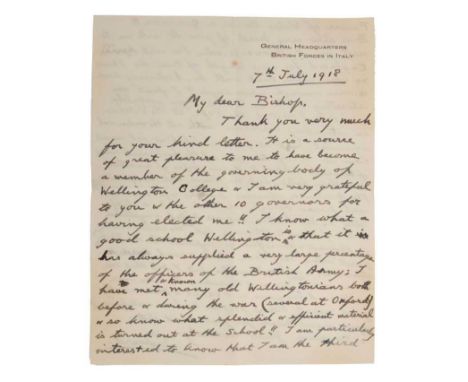 GENERAL HEADQUARTERS
BRITISH FORCES IN ITALY
7th July 1918
My dear Bishop.
Thank you very much
for your kind letter. It is a source
of great pleasure to me to have become
a member of the governing body of
Wellington College & I am very grateful
to you & the other 10 governors for
having elected me!! I know what a
good school Wellington is & that it
has always supplied a very large percentage
of the officers of the British Army; I
have met & known many old Wellingtonians both
before & during the war (several at Oxford)
& so know what splendid & efficient material
is turned out at the School!! I am particularly
interested to know that I am the third